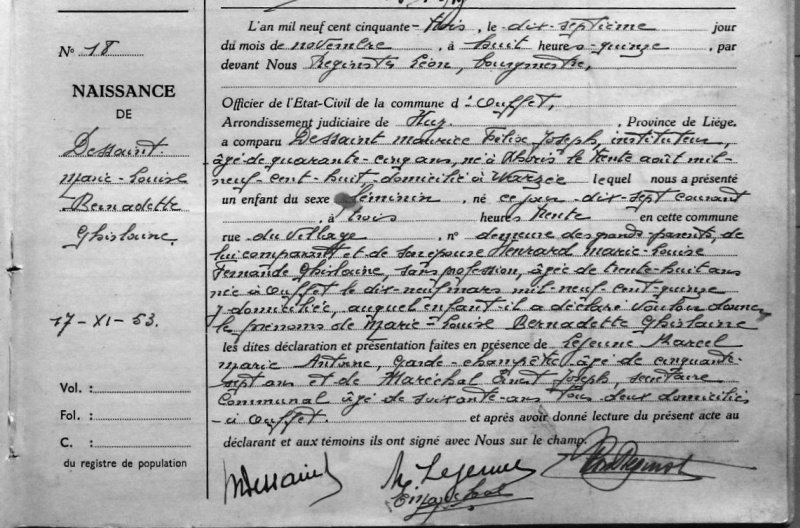 N° 18
NAISSANCE
DE
Dessaint
Marie-Louise
Bernadette
Ghislaine
17-XI-53.
Vol. :
Fol. :
C. :
du registre de population
L'an mil neuf cent cinquante-trois, le dix-septième jour
du mois de novembre, à huit heures quinze, par
devant Nous Reginster Léon, bourgmestre,
Officier de l'Etat-Civil de la commune d'Ouffet,
Arrondissement judiciaire de Huy, Province de Liège,
a comparu Dessaint Maurice Félix Joseph, instituteur,
âgé de quarante-cinq ans, né à le trente août mil-
neuf-cent-huit, domicilié à Warzée lequel nous a présenté
un enfant du sexe féminin, né ce jour dix-sept courant
, à trois heures trente en cette commune
rue du Village, n° demeure des grands-parents, de
lui comparant et de son épouse Henrard Marie-Louise
Fernande Ghislaine, sans profession, âgée de trente-huit ans
née à Ouffet le dix-neuf mars mil-neuf-cent-quinze
y domiciliée, auquel enfant il a déclaré vouloir donner
les prénoms de Marie-Louise Bernadette Ghislaine
les dites déclaration et présentation faites en présence de Lejeune Marcel
Marie Antoine, Garde-champêtre âgé de cinquante-
sept ans et de Maréchal Joseph, secrétaire
Communal âgé de soixante-ans tous deux domiciliés
à Ouffet. et après avoir donné lecture du présent acte au
déclarant et aux témoins ils ont signé avec Nous sur le champ.
MDessaint M. Lejeune